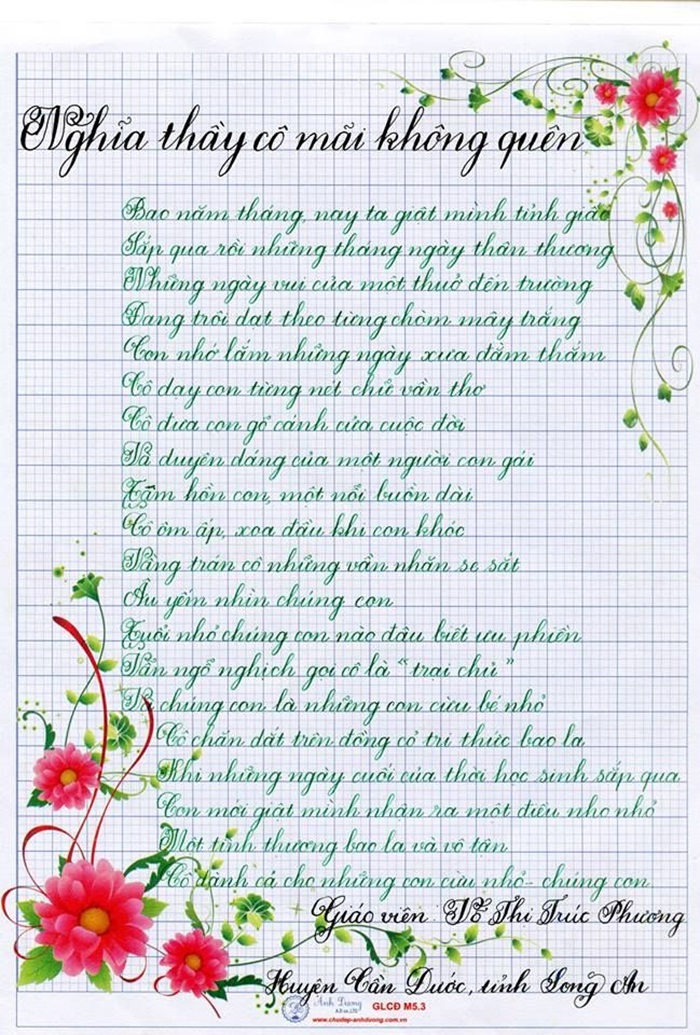 Nghĩa thầy cô mãi không quên
Bao năm tháng, nay ta giật mình tỉnh giấc
Sắp qua rồi những tháng ngày thân thương
Những ngày vui của một thuở đến trường
Đang trôi dạt theo từng chòm mây trắng
Con nhớ lắm những ngày xưa đằm thắm
Cô dạy con từng nét chữ vần thơ
Cô đưa con gõ cánh cửa cuộc đời
Và duyên dáng của một người con gái
Tâm hồn con, một nỗi buồn dài
Cô ôm ấp, xoa đầu khi con khóc
Vầng trán cô những vần nhăn se sắt
Âu yếm nhìn chúng con
Tuổi nhỏ chúng con nào đâu biết ưu phiền
Vẫn ngổ nghịch gọi cô là "trại chủ"
Và chúng con là những con cừu bé nhỏ
Cô chăn dắt trên đồng cỏ tri thức bao la
Khi những ngày cuối của thời học sinh sắp qua
Con mới giật mình nhận ra một điều nho nhỏ
Một tình thương bao la và vô tận
Cô dành cả cho những con cừu nhỏ - chúng con
Giáo viên: Võ Thị Trúc Phương
Huyện Cần Đước, tỉnh Long An
Ánh Dương
GLCĐ M5.3
www.chudep-anhduong.com.vn